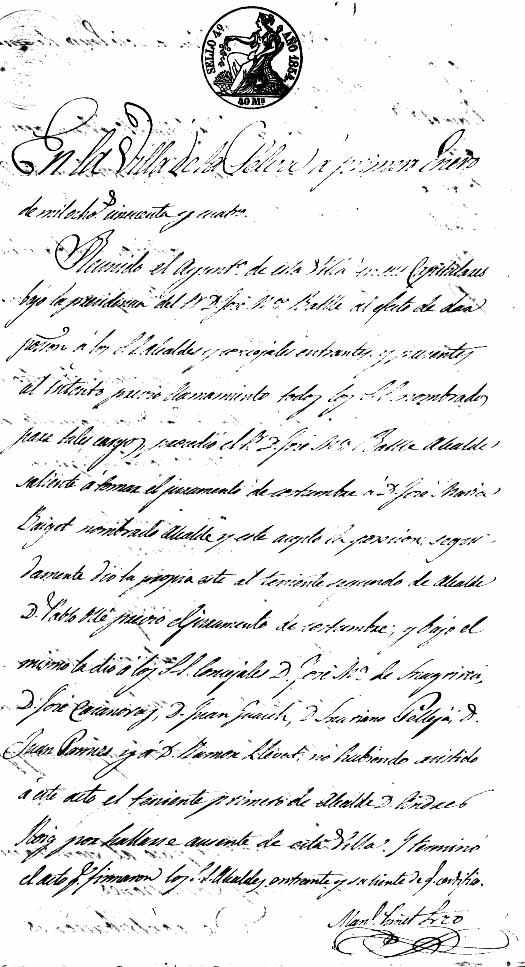 SELLO 4º AÑO 1854
40 Ms
En la Villa de la Selva á primero Enero
de mil ochos cincuenta y cuatro.
Reunido el Ayuntº de esta Villa en sus Capitulares
bajo la presidencia del Sr D. José Mª Batlle al efecto de dar
poseson á los SS. Alcaldes y concejales entrantes, y presentes
al intento previo llamamiento todos los SS. nombrados
para tales cargos, procedió el Sr D. José Mª Batlle Alcalde
saliente á tomar el juramento de costumbre á D. José Maria
Puigot nombrado Alcalde y este acepto la posesion, segui-
damente dio la propia este al teniente segundo de Alcalde
D. Pablo Ollé previo el juramento de costumbre; y bajo el
mismo la dio á los SS. Concejales D. José Mª de
D. José Casanovas, D. Juan Guasch, D. Mariano Pellejá, D.
Juan y á D. Ramon Llevat; no habiendo asistido
á este acto el teniente primero de Alcalde D. Andres
Roig por hallarse ausente de esta Villa. Y terminó
el acto q. firmaron los SS. Alcaldes entrante y saliente de q. certifico.
Manl Srio